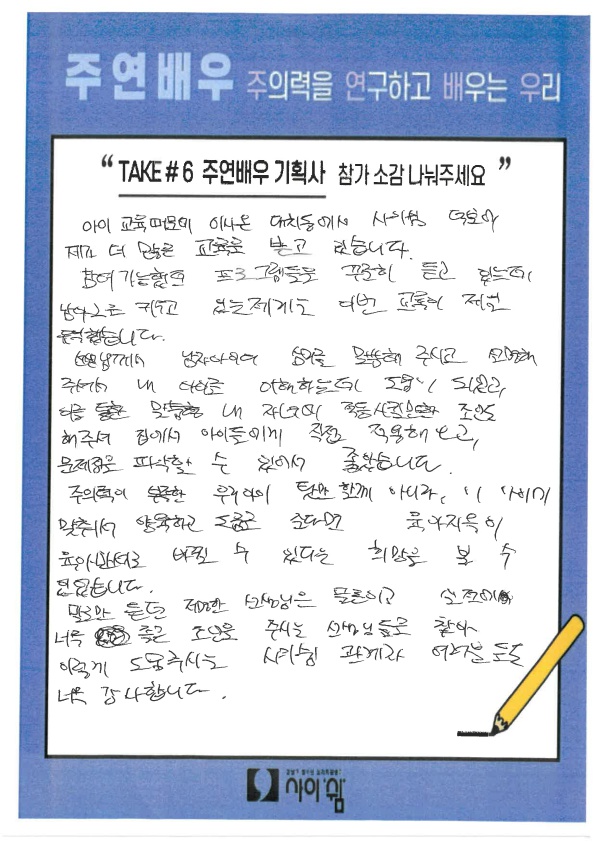 주연배우 주의력을 연구하고 배우는 우리
“ TAKE # 6 주연배우 기획사 참가 소감 나눠주세요 ”
아이 교육때문에 이사온 대치동에서 사이쉼 덕분에
제가 더 많은 교육을 받고 있습니다.
참여가능할만 프로그램들을 꾸준히 듣고 있는데,
키우고 있는 제게는 이번 교육이 제일
특별했습니다.
선생님께서 남자아이의 말씀해 주시고 설명해
주셔서 내 아이를 이해하는데 도움이 되었고,
내 자녀의 조언도
해주셔서 집에서 아이들에게 직접 적용해보고,
문제점을 파악할 수 있어서 좋았습니다.
주의력이 부족한 우리아이 탓만 할게 아니라, 이
맞춰서 양육하고 도움을 준다면 육아지옥이
바뀔 수 있다는 희망을 볼 수
있었습니다.
말로만 듣던 선생님은 물론이고
너무 좋은 조언을 주시는 선생님들을 찾아
이렇게 도움주시는 사이쉼 관계자 여러분들도
너무 감사합니다.
사이쉼